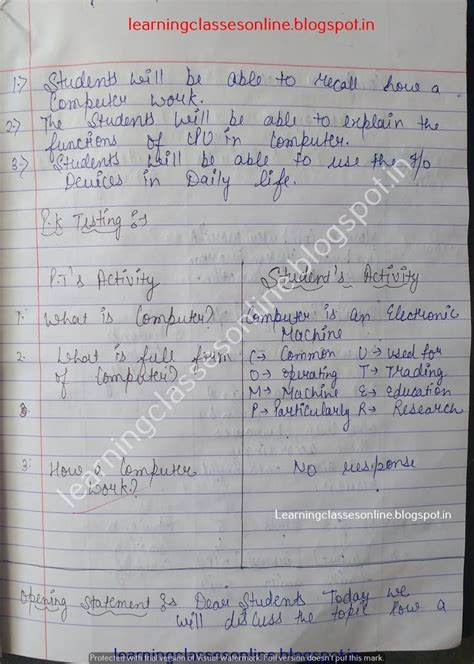 learningclassesonline.blogspot.in
1:) Students will be able to recall how a
Computer work.
2:) The Students will be able to explain the
functions of CPU in Computer.
3:) Students will be able to use the I/O
Devices in Daily life.
P.k Testing :-
P.T's Activity Student's Activity
1. What is Computer? Computer is an Electronic
Machine
2. What is full from C → Common U → used for
of Computer? O → Operating T → Trading
M → Machine E → Education
3 P → Particularly R → Research
3: How a Computer No response
work?
Learningclassesonline.blogspot.in
Opening Statement :- Dear Students Today we
will discuss the topic how a
Protected with trial version of Visual Watermark. Full version doesn't put this mark.
learningclassesonline.blogspot.in
learningclassesonline.blogspot.in